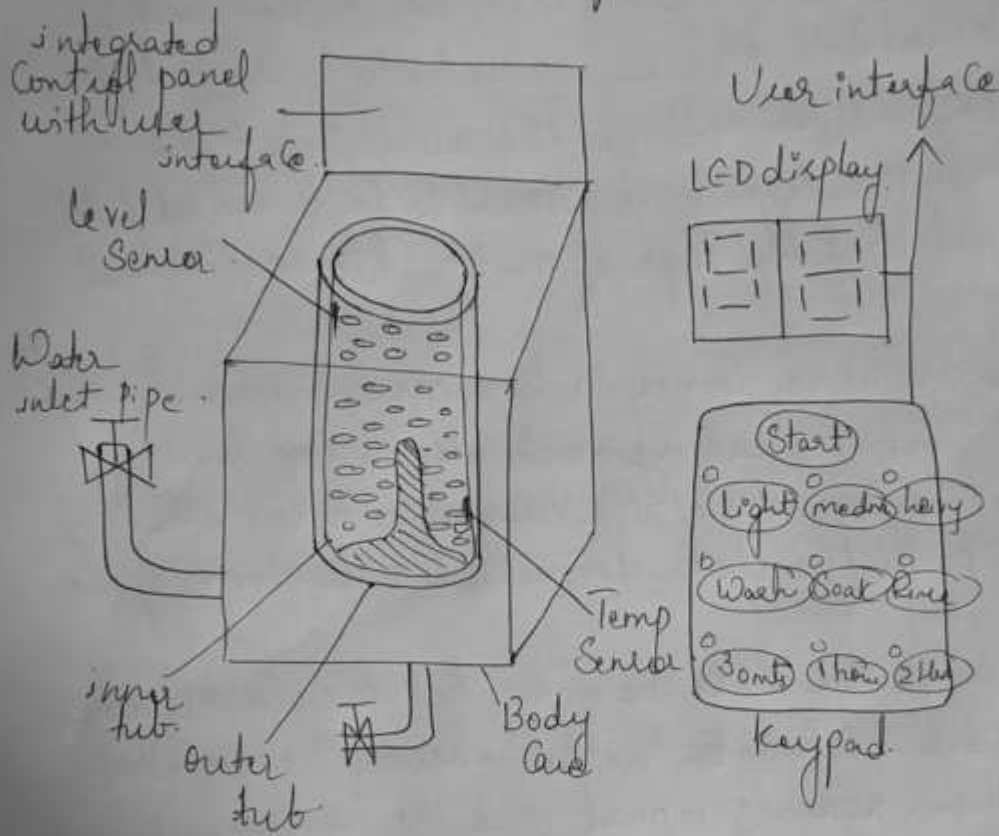 integrated
Control panel
with user
interface.
level
Sensor
Water
inlet pipe.
inner
tub.
outer
tub
Temp
Sensor
Body
User interface
LED display
Start
Light medm heavy
Wash Soak Rinse
30mts 1 hour
Keypad.